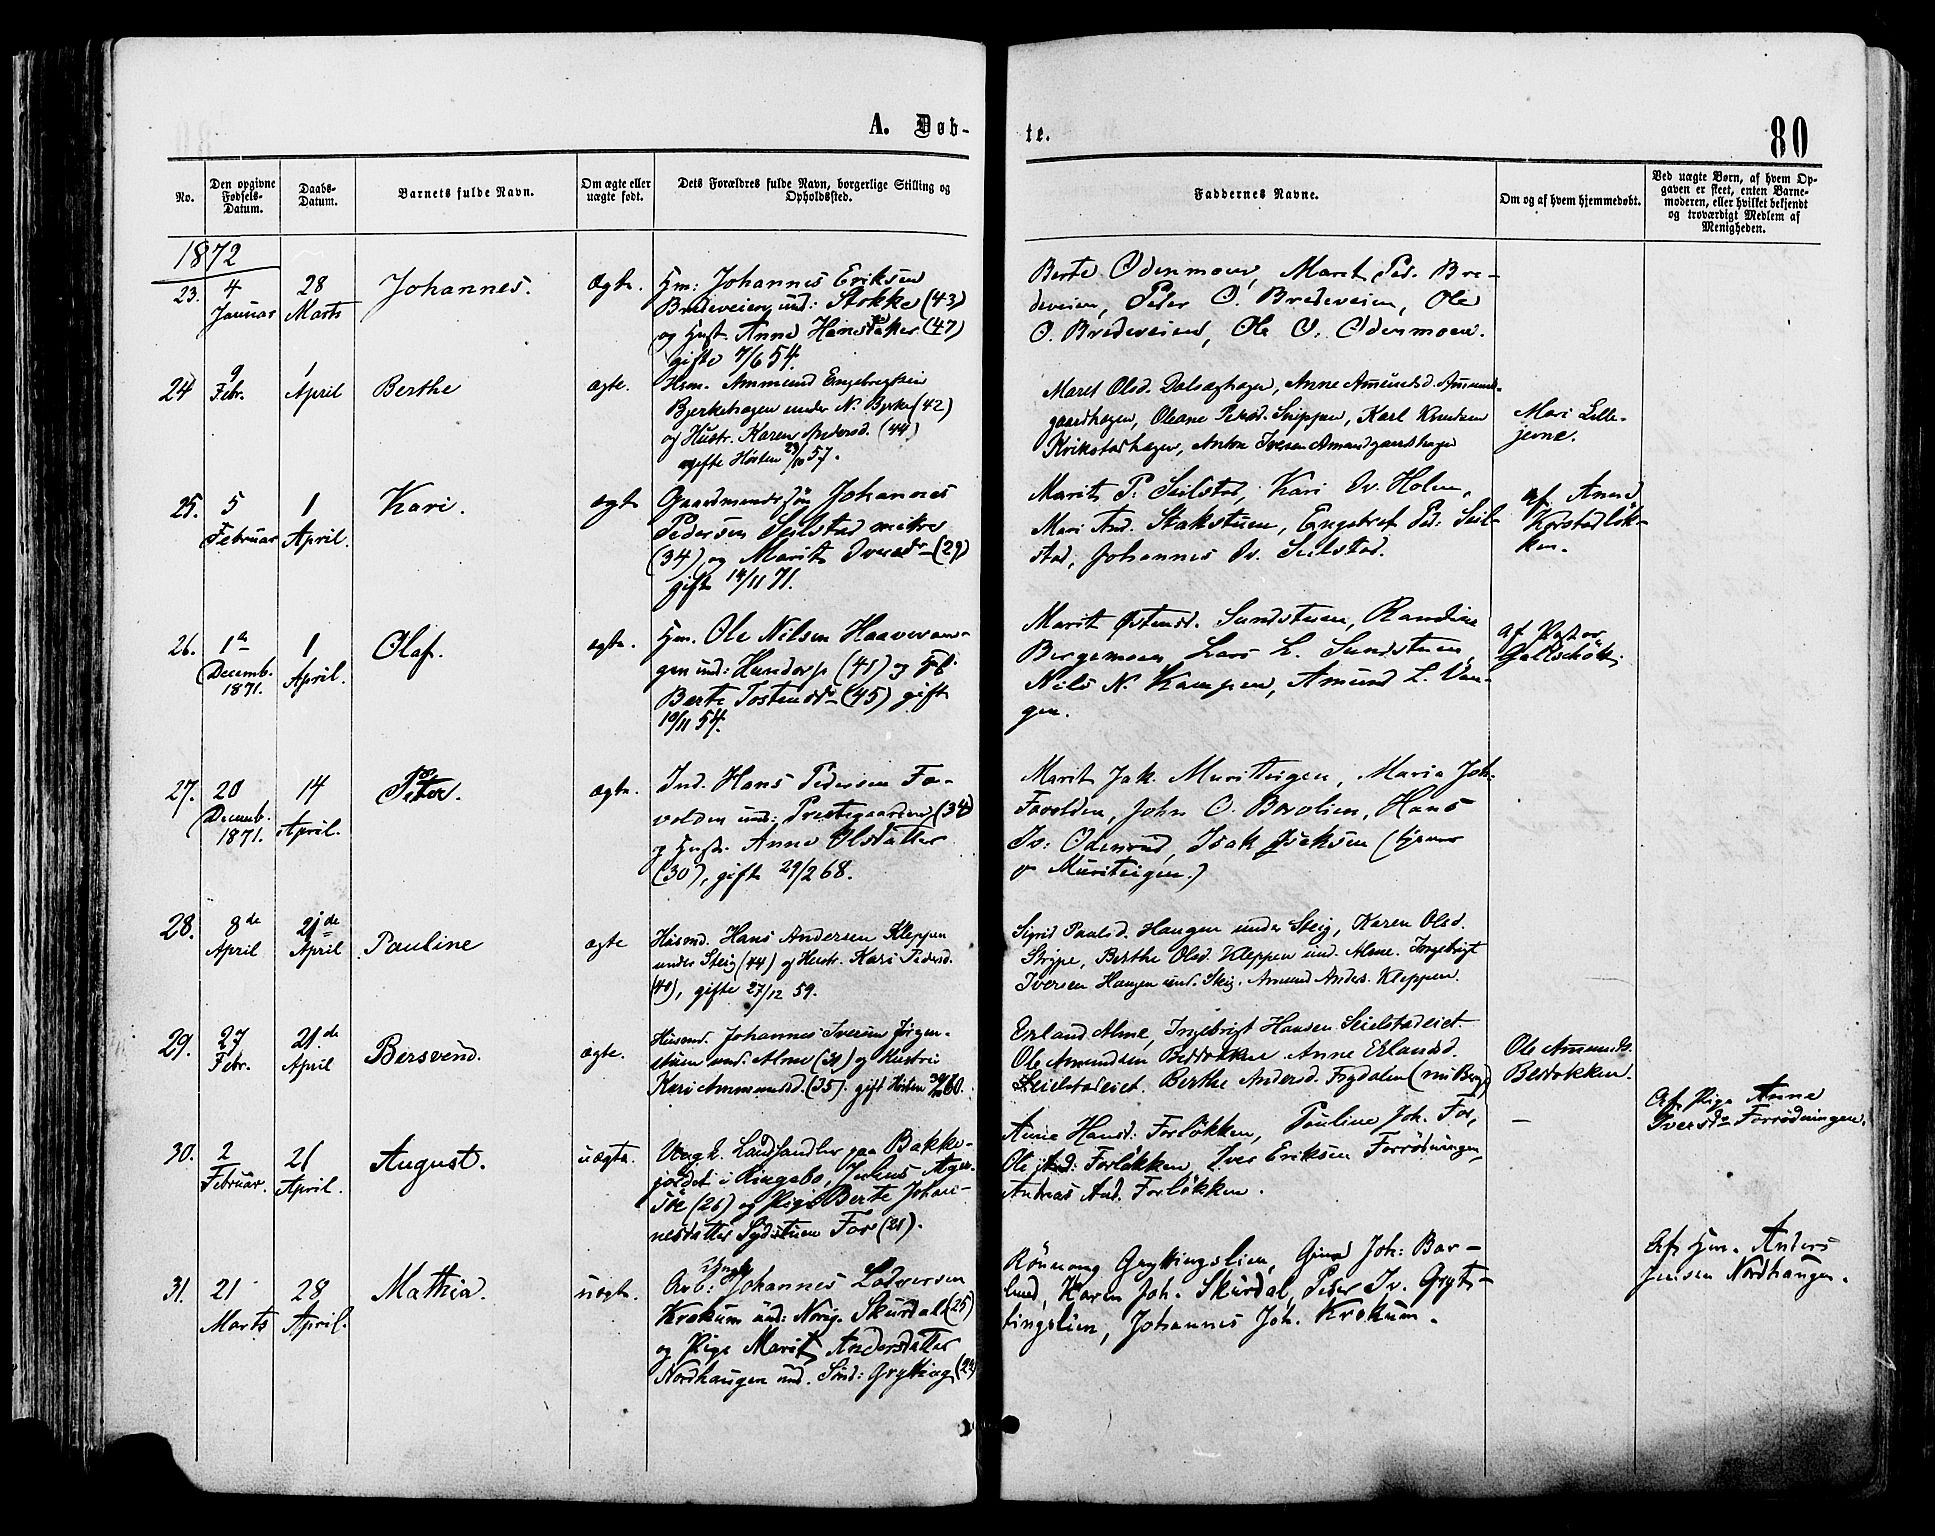 A. Døb-
te.
80
No.
Den opgivne
Fødsels-
Datum.
Daabs-
Datum.
Barnets fulde Navn.
Om ægte eller
uægte født.
Dets Forældres fulde Navn, borgerlige Stilling og
Opholdssted.
Faddernes Navne.
Om og af hvem hjemmedøbt.
Ved uægte Børn, af hvem Op-
gaven er skeet, enten Barne-
moderen, eller hvilket bekjendt
og troværdigt Medlem af
Menigheden.
1872
23.
4
Januar
28
Marts
Johannes.
Ægte.
Hm: Johannes Eriksen
Bredeveien und: Stokke (43)
og Hust. Anne Hansd
(47)
gifte 7/6 54.
Berte Odenmoen, Marit Ped. Bre-
deveien, Peder O. Bredeveien, Ole
O. Bredeveien, Ole O. Odenmoen.
24
9
Febr.
1
April
Berthe
ægte.
Hsm. Ammund Engebregtsen
Bjerkehagen under N. Bjerke (42)
og Hustr. Karen Andersd. (44)
gifte Høsten 23/10 57.
Maret Olsd. Dalseghagen, Anne Amundsd. Amund-
gaardhagen, Oleane Pedersd. Snippen, Karl Knudsen
Krikstadhagen, Anton Iversen Amundgaardhagen
Mari Lille-
jevne.
25.
5
Februar
1
April.
Kari.
ægte
Gaardmandssøn Johannes
Pedersen Seilstad
(34), og Marit Iversdr (29)
gift 14/11 71.
Marit P. Seilstad, Kari Iv. Holen,
Mari And. Stakstuen, Engebret Ped: Seil-
stad, Johannes Iv. Seilstad.
af Anne
Korstadløk-
ken.
26.
1ste
Decemb.
1871.
1
April.
Olaf.
ægte.
Hm. Ole Nilsen Haavevan-
gen und: Hundorp (41) og Hb.
Berte Tostensdr (45) gift
10/11 54.
Marit Østensd. Sundstuen, Randine
Bergemoen, Lars L. Sundstuen,
Nils N. Kampen, Amund L. Van-
gen.
af Pastor
27.
20
Decemb.
1871.
14
April.
Peter.
ægte.
Ind. Hans Pedersen Fo-
volden und: Prestegaarden (34)
og Hustr. Anne Olsdatter
(30), gift 29/2 68.
Marit Jak. Muriteigen, Maria Joh.
Fovolden, John O. Bovolien, Hans
Iv: Odenrud, Isak Isaksen
Muriteigen.)
28.
8de
April
21de
April
Pauline
ægte
Husmd. Hans Andersen Kleppen
under Steig (44) og Hustr. Kari Pedersd.
(40), gifte 27/12 59.
Sigrid Paulsd. Haugen under Steig, Karen Olsd.
Stripe, Berthe Olsd. Kleppen und. Alme. Ingebrigt
Iversen Haugen und. Steig. Amund Anders. Kleppen.
29.
27
Febr.
21de
April
Bersvend.
ægte.
Husmd. Johannes Iversen Jørgen-
stuen und. Alme (31) og Hustru
Kari Ammundsd. (35). gift Høsten 60.
Erland Alme, Ingebrigt Hansen Seielstadeiet.
Ole Amundsen Beddokken Anne Erlandsd.
Seielstadeiet. Berthe Andersd. Frydalen (nu Berg)
Ole Amunds.
Beddokken.
30.
2
Februar.
21
April.
August.
uægte.
Ungk. Landhandler paa Bakke-
jordet i Ringebo, Julius
(26) og Pige Berte Johan-
nesdatter Sydstuen For (21).
Anne Hansd: Forløkken, Pauline Joh. For,
Ole And: Forløkken, Iver Eriksen Forrødningen,
Andreas And. Forløkken.
–
Af Pige Anne
Iversdr Forrødningen.
31.
21
Marts
28
April.
Mathia.
uægte.
Ungk
Arb: Johannes Lodversen
Krokum und: Norig. Skurdal (25)
og Pige Marit Andersdatter
Nordhaugen und. Sönd: Grytting (24)
Rönnaug Gryttingslien, Gunild Joh: Bor-
lund, Karen Joh. Skurdal, Peder Iv. Gryt-
tingslien, Johannes Joh. Krokum.
Af Hm. Anders
Jensen Nordhaugen.